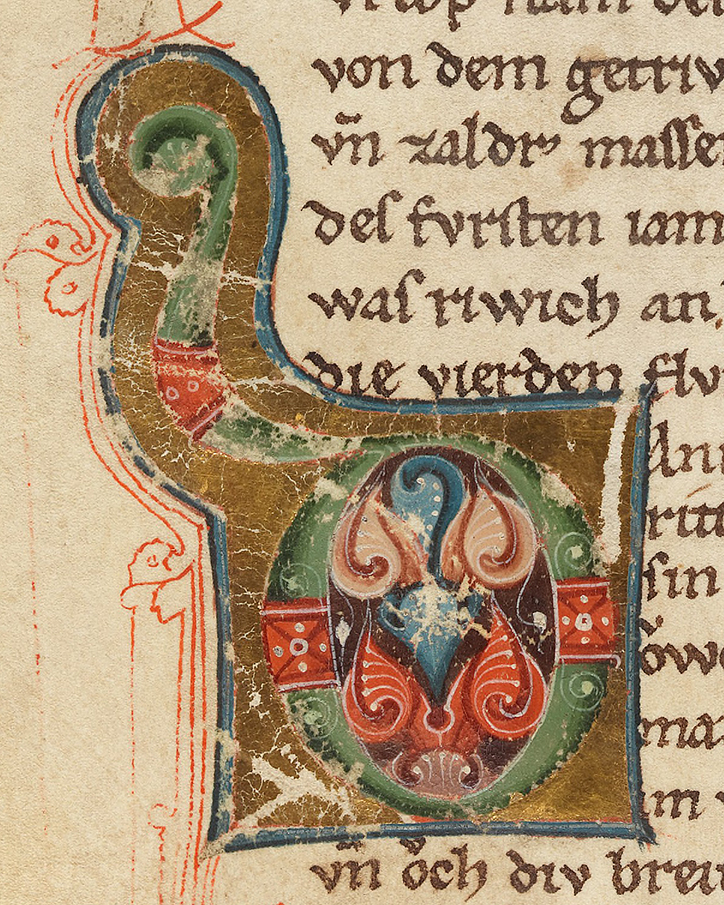 von dem getriv
vn̄ zaldr͛ maſſe
deſ fvrſten iam
waſ riwich an
die vierden flv
D Ann
ritt
ſin
ma
vn̄ oͮch div brev